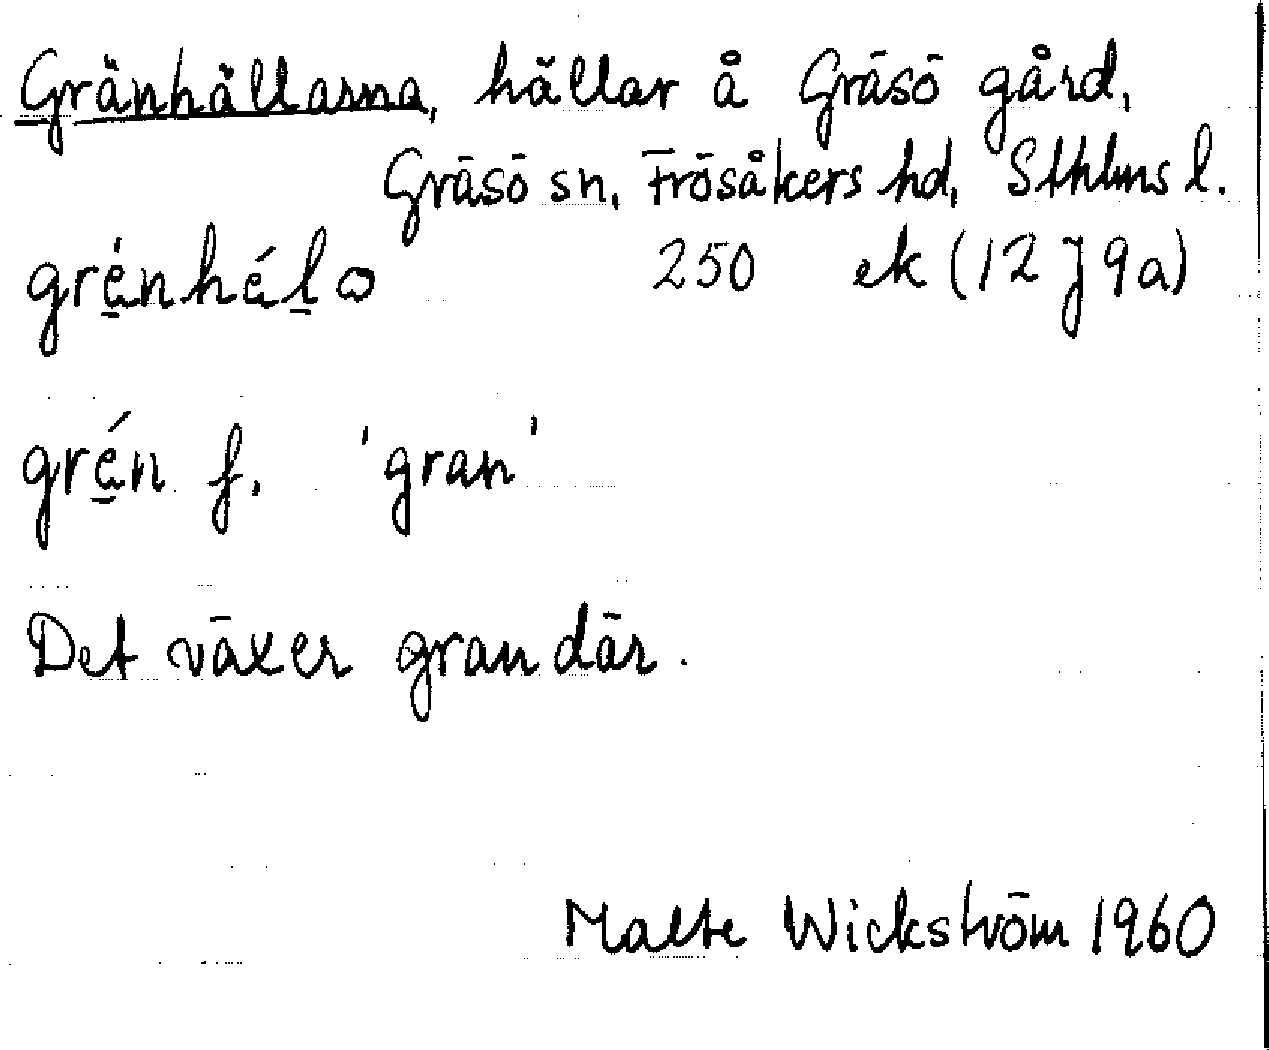 Gränhällarna, hällar å Gräsö gård,
Gräsö sn, Frösåkers hd, Sthlms l.
grénhélo 250 ek (12 J 9a)
grén f. 'gran'
Det växer gran där.
Malte Wickström 1960